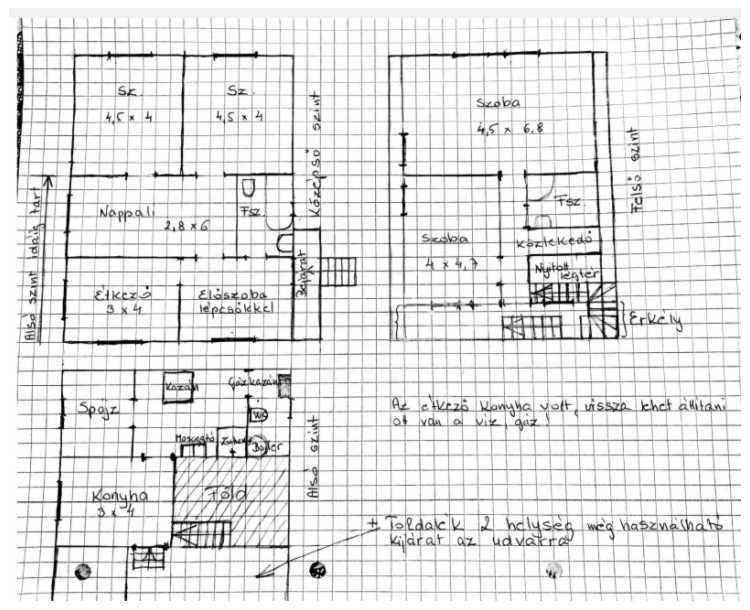 Sz.
4,5 x 4
Sz.
4,5 x 4
Középső szint
Nappali
2,8 x 6
Fsz.
Étkező
3 x 4
Előszoba
lépcsőkkel
Bejárat
Alsó szint idáig tart
Szoba
4,5 x 6,8
Felső szint
Fsz.
Szoba
4 x 4,7
Közlekedő
Nyitott
légtér
Erkély
Spájz
Kazán
Gázkazán
WC
Mosogató
Zuhany
Bojler
Alsó szint
Konyha
3 x 4
Föld
Az étkező konyha volt, vissza lehet állítani
ott van a víz, gáz!
+ Toldalék 2 helység még használható
kijárat az udvarra